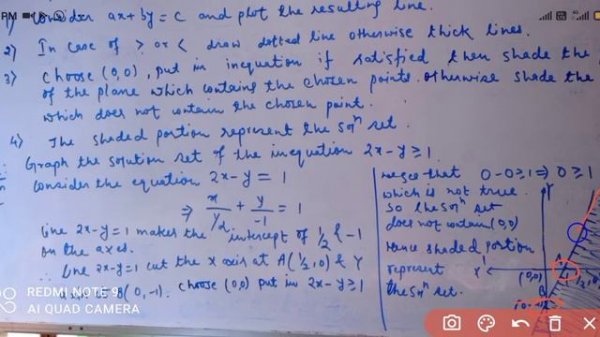 1) Consider ax+by=c and plot the resulting line.
2) In case of > or < draw dotted line otherwise thick lines.
3) Choose (0,0), put in inequation if satisfied then shade the
of the plane which contains the chosen points. Otherwise shade the
which does not contain the chosen point.
4) The shaded portion represent the solⁿ set.
Graph the solution set of the inequation 2x-y≥1.
Consider the equation 2x-y=1
⇒ x/½ + y/-1 = 1
line 2x-y=1 makes the intercept of ½ & -1
on the axes.
∴ line 2x-y=1 cut the x axis at A(½,0) & Y
B(0,-1). Choose (0,0) put in 2x-y≥1
that 0-0≥1⇒0≥1
which is not true.
So the solⁿ set
does not contain (0,0)
Hence shaded portion
represent
the solⁿ set.
Y
X'
(0,0)
A
REDMI NOTE 9
AI QUAD CAMERA